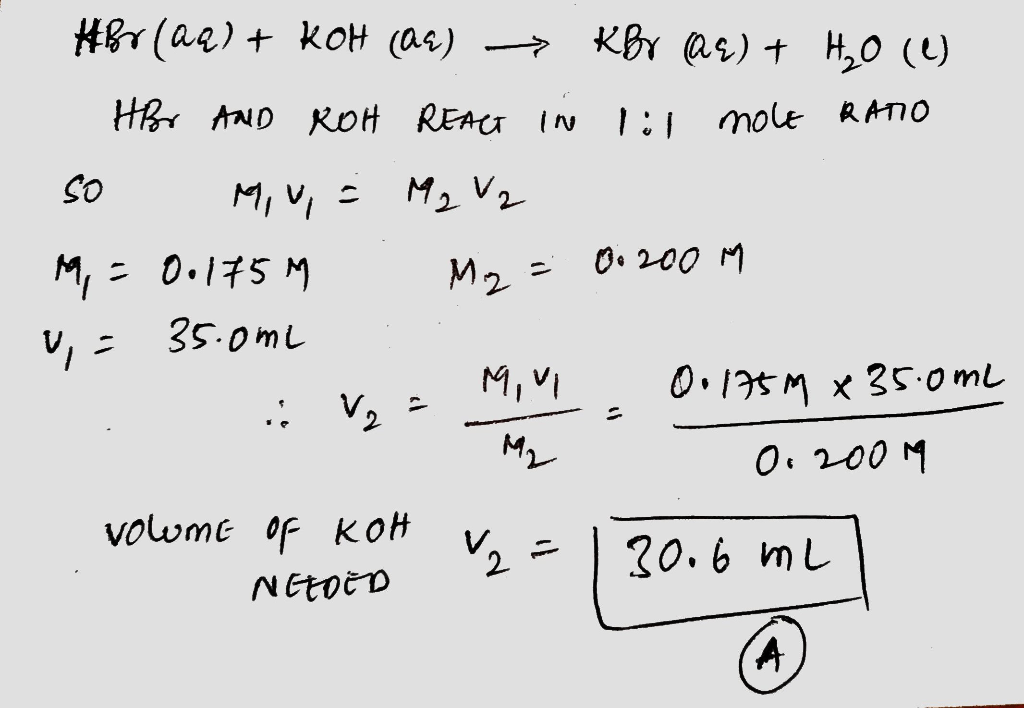 HBr (aq) + KOH (aq) → KBr (aq) + H₂O (l)
HBr AND KOH REACT IN 1:1 MOLE RATIO
SO M₁V₁ = M₂V₂
M₁ = 0.175 M M₂ = 0.200 M
V₁ = 35.0 mL
∴ V₂ = M₁V₁ / M₂ = 0.175 M × 35.0 mL / 0.200 M
VOLUME OF KOH NEEDED V₂ = 30.6 mL
A